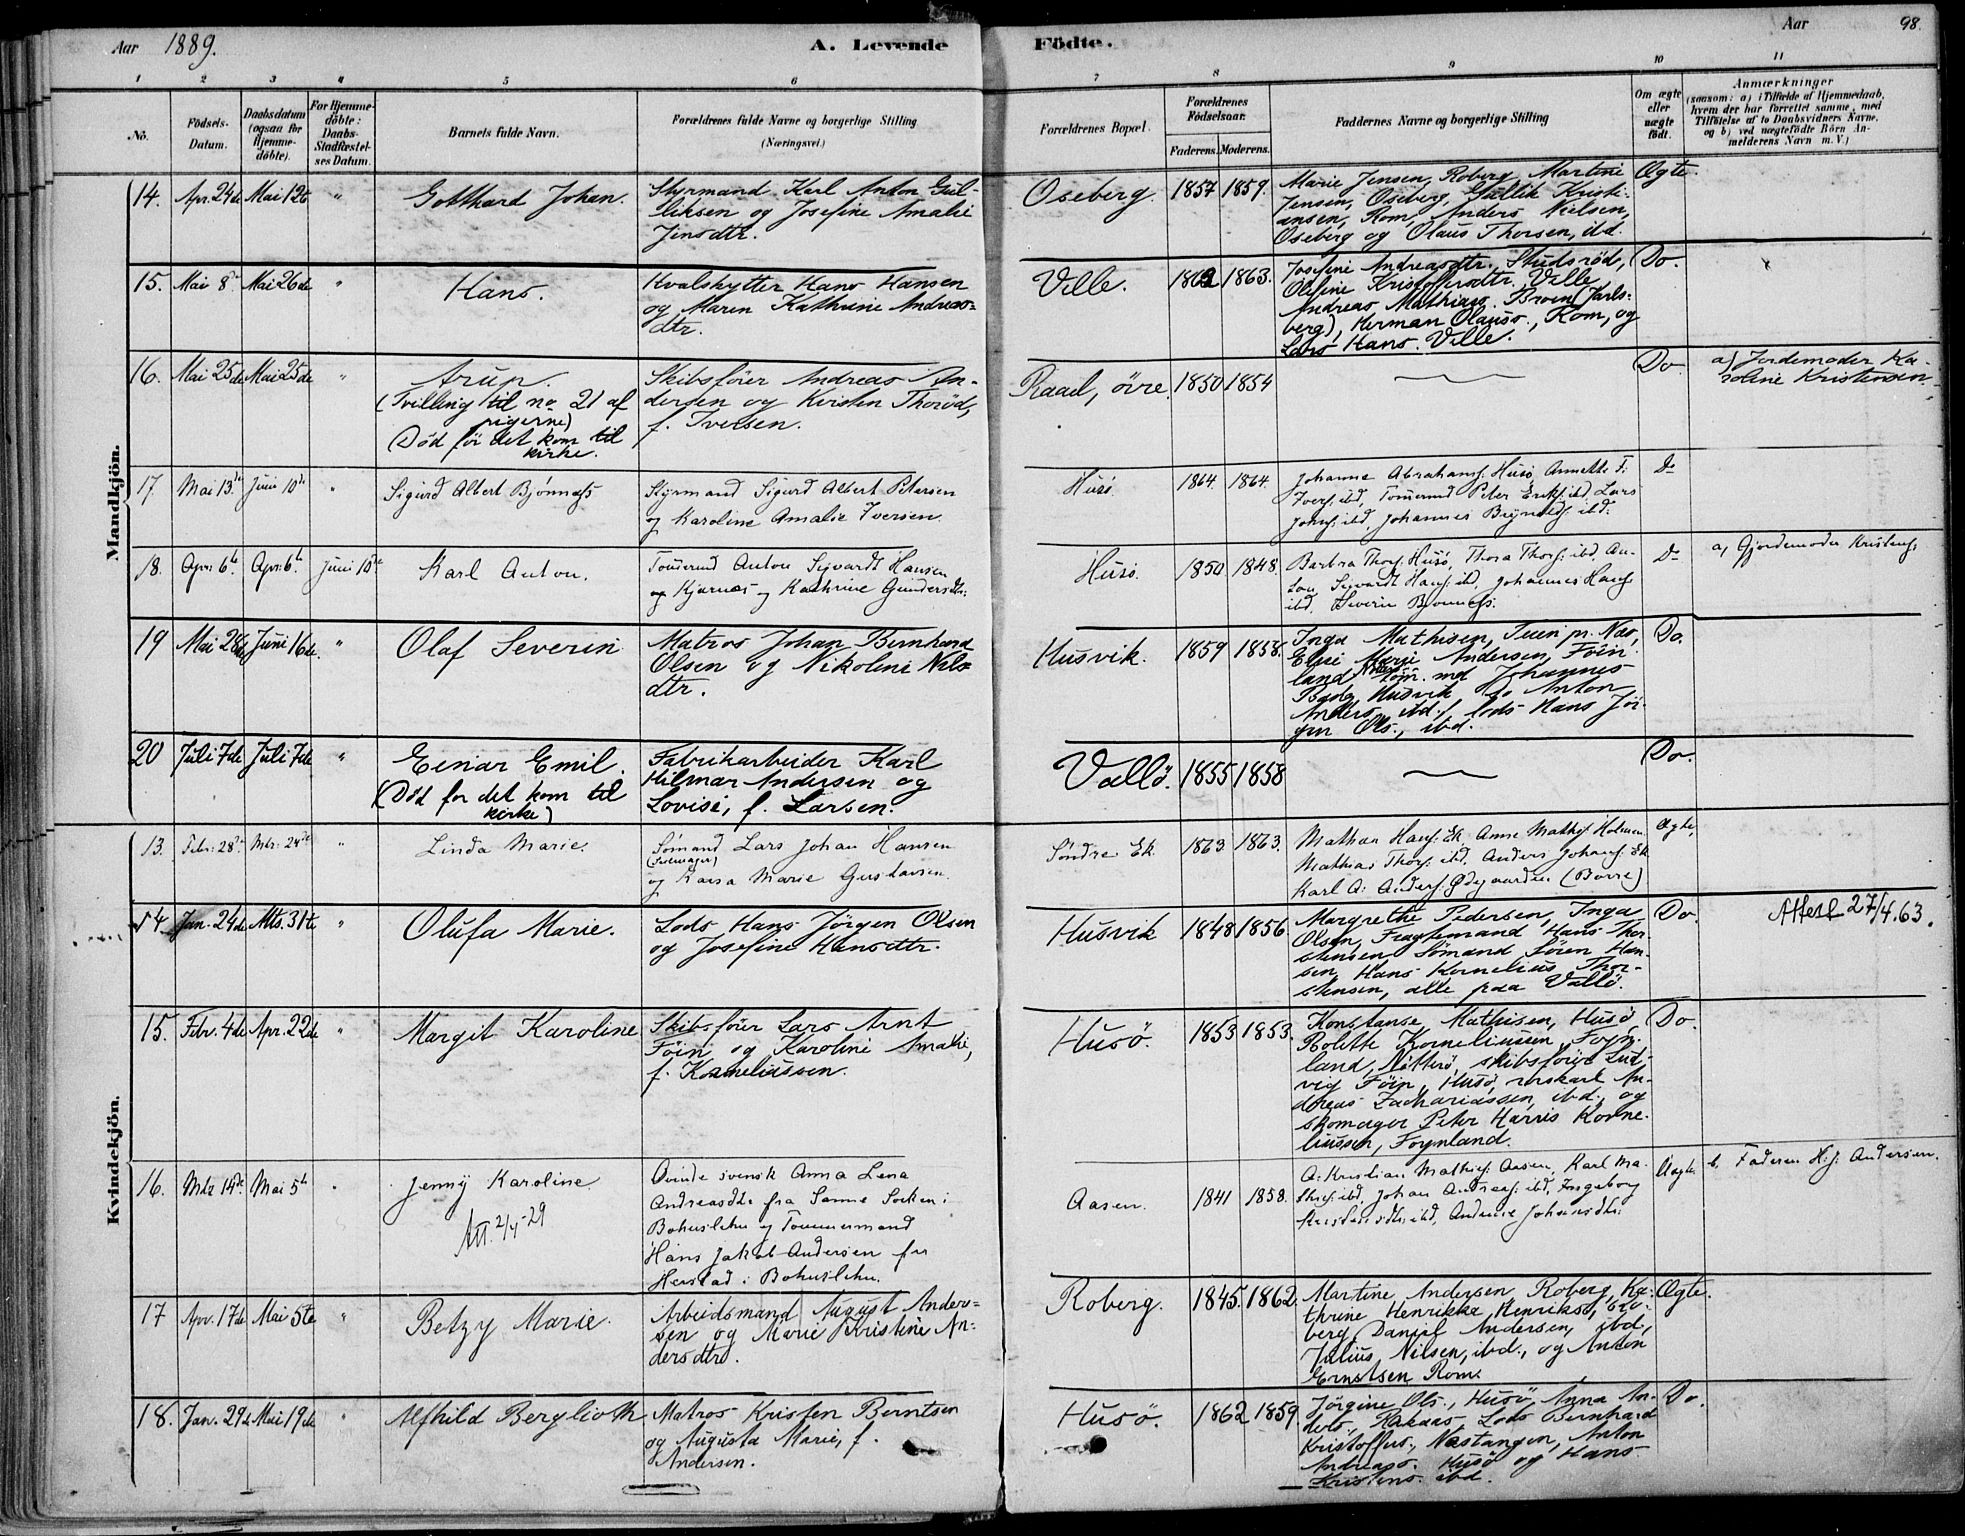 Aar 1889.
A. Levende Födte.
Aar 98.
1 2 3 4 5 6 7 8 9 10 11
No.
Födsels-
Datum.
Daabsdatum
(ogsaa for
Hjemme-
döbte).
For Hjemme-
döbte:
Daabs-
Stadfæstel-
ses Datum.
Barnets fulde Navn.
Forældrenes fulde Navne og borgerlige Stilling
(Næringsvei.)
Forældrenes Bopæl.
Forældrenes
Födselsaar.
Faderens. Moderens.
Faddernes Navne og borgerlige Stilling
Om ægte
eller
uægte
födt.
Anmærkninger
(saasom: a) i Tilfælde af Hjemmedaab,
hvem der har forrettet samme, med
Tilföielse af to Daabsvidners Navne,
og b) ved uægtefödte Börn An-
melderens Navn m.V.)
Mandkjön.
14. Apr. 24de Mai 12te "
Gotthard Johan.
Styrmand Karl Anton Gul-
liksen og Josefine Amalie
Jensdtr.
Oseberg. 1857 1859.
Marie Jensen, Roberg, Martine
Jensen, Oseberg, Gullik Kristi-
ansen, Rom, Anders Nielsen,
Oseberg og Olaus Thorsen, ibd.
Ægte
15. Mai 8de Mai 26de "
Hans.
Hvalskytter Hans Hansen
og Maren Kathrine Andreas-
dtr.
Velle. 1862 1863.
Josefine Andreasdtr. Studsröd,
Olefine Kristoffersdtr. Velle,
Andreas Mathias. Broen (Jarls-
berg), Herman Olauss., Rom, og
Lars Hans. Velle.
Do.
16. Mai 25de Mai 25de "
Arup.
(Tvilling til no 21 af
pigerne)
Död för det kom til
kirke.
Skibsförer Andreas An-
dersen og Kirsten Thoröd,
f. Iversen.
Raael, övre. 1850 1854
Do.
a) Jordemoder Ka-
roline Kristensen
17. Mai 13de Juni 10de "
Sigurd Albert Bjönnæss
Styrmand Sigurd Albert Petersen
og Karoline Amalie Iversen.
Husö. 1864. 1864.
Johanne Abrahams. Husö, Annette F.
Ivers. ibd, Tömmermd Peter Eriks. ibd. Lars
Johs. ibd, Johannes Brynilds. ibd.
Do
18. Apr. 6te Apr. 6te Juni 10de
Karl Anton.
Tömmermd Anton Sigvardt Hansen
og Kjærnæs og Kathrine Gundersdtr.
Husö. 1850 1848.
Barbra Thors. Husö, Thora Thors. ibd. An-
ton Sigvardt Hans. ibd, Johannes Hans.
ibd. Severin Bjönnæss.
Do
a) Gjordemoder Kristens.
19 Mai 28de Juni 16de. "
Olaf Severin
Matros Johan Bernhard
Olsen og Nikoline Nils-
dtr.
Husvik. 1859 1858.
Inga Mathisen, Teien pr. Næs,
Elise Marie Andersen, Föin-
land, Töm. md Johannes
Husvik Do Anton
Anders. ibd., lods Hans Jör-
gen Ols., ibd.
Do.
20 Juli 7de Juli 7de "
Einar Emil.
(Död for det kom til
kirke)
Fabrikarbeider Karl
Hilmar Andersen og
Lovise, f. Larsen.
Vallö. 1855 1858
Do.
Kvindekjön.
13. Febr. 28de Mts. 24de "
Linda Marie.
Sömand Lars Johan Hansen
og Kaisa Marie Gustavsen.
Söndre Ek. 1863 1863.
Mathea Hans. Ek. Anne Mathis. Holmen.
Mathias Thors. ibd. Anders Johans. Ek
Karl A. Anders. Ödegaarden (Borre)
Ægte,
14. Jan. 24de Mts. 31te "
Olufa Marie.
Lods Hans Jörgen Olsen
og Josefine Hansdtr.
Husvik 1848 1856.
Margrethe Pedersen, Inga
Olsen, Fragtemand Hans Thor-
stensen, Sömand Sören Han-
sen, Hans Kornelius Thor-
stensen, alle paa Vallö.
Do.
Attest 27/4.63.
15. Febr. 4de Apr. 22de "
Margit Karoline
Skibsförer Lars Arnt
Föin og Karoline Amalie,
f. Korneliussen.
Husö. 1853 1853.
Konstanse Mathisen, Husö,
Bolette Korneliussen, Föyn-
land, Nötterö, skibsförer Lud-
vig Föin, Husö, ungkarl An-
dreas Zachariassen, ibd., og
skomager Peter Harris Korne-
liussen, Foynland.
Do.
16. Mts 14de Mai 5te "
Jenny Karoline.
Att. 2/4-29
Qvinde svensk Anna Lena
Andreasdtr fra Sanne Socken i
Bohuslehn og Tömmermand
Hans Jakob Andersen fra
Herstad i Bohuslehn.
Aasen. 1841 1858.
A. Kristian Mathis. Aasen, Karl Ma-
this. ibd. Johan Andreas. ibd, Ingeborg
Kristensdtr ibd, Andrine Johansdtr.
Uægte
b. Faderen H. J. Andersen.
17 Apr. 17de Mai 5te "
Betzy Marie.
Arbeidsmand August Ander-
sen og Marie Kristine An-
dersdtr.
Roberg. 1845. 1862.
Martine Andersen Roberg, Ka-
thrine Henrikka Henriks., Ro-
berg, Daniel Andersen, ibd,
Julius Nilsen, ibd., og Anton
Ernstsen Rom.
Ægte.
18. Jan. 29de Mai 19de "
Alfhild Berglioth
Matros Kristen Berntsen
og Augusta Marie, f.
Andersen.
Husö. 1862 1859.
Jörgine Ols., Husö, Anna An-
ders., Ramnæs, Lods Bernhard
Kristoffers., Nestangen, Anton
Andreass. Husö og Hans
Kristens. ibd.
Do.